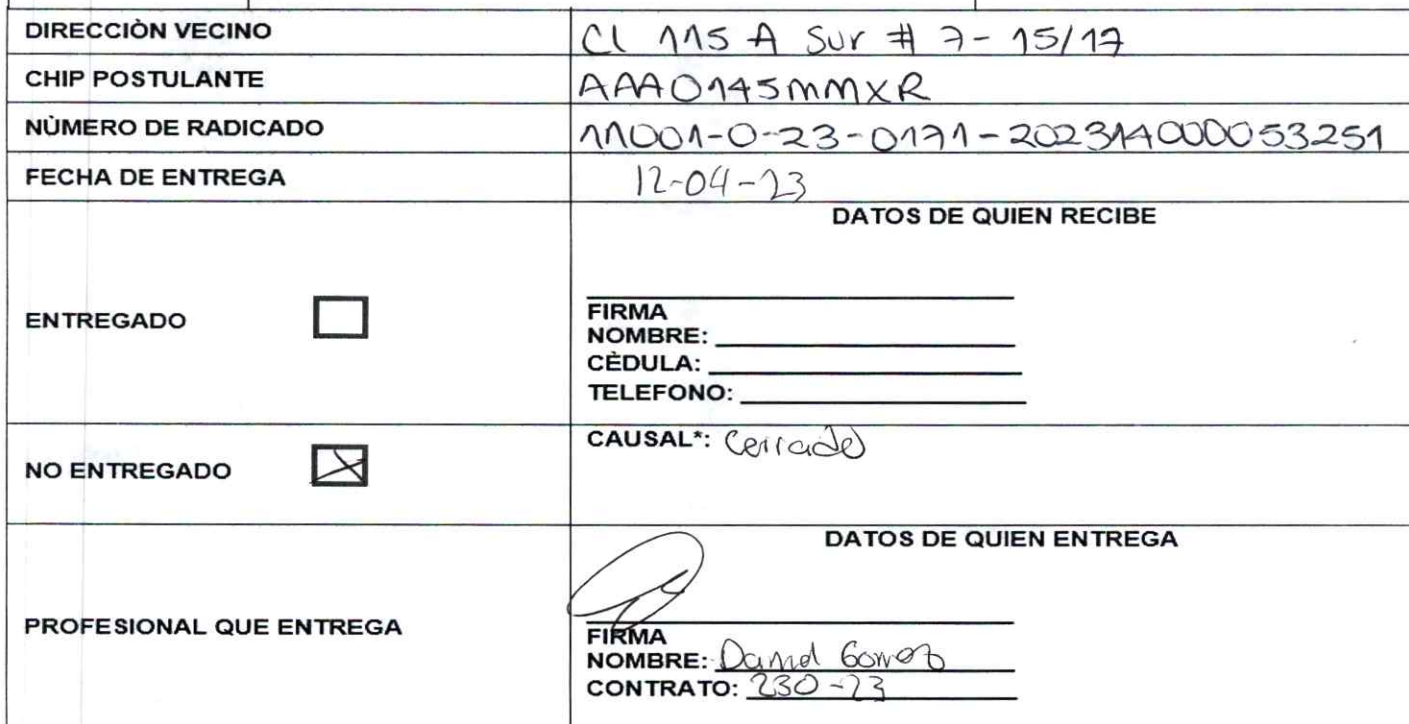 DIRECCIÒN VECINO CL 115 A Sur # 7-15/17
CHIP POSTULANTE AAA0145MMXR
NÙMERO DE RADICADO 11001-0-23-0171-202314000053251
FECHA DE ENTREGA 12-04-23
DATOS DE QUIEN RECIBE
ENTREGADO
FIRMA
NOMBRE:
CÈDULA:
TELEFONO:
NO ENTREGADO
CAUSAL*: Cerrado
DATOS DE QUIEN ENTREGA
PROFESIONAL QUE ENTREGA
FIRMA
NOMBRE: Daniel Gomez
CONTRATO: 230-23